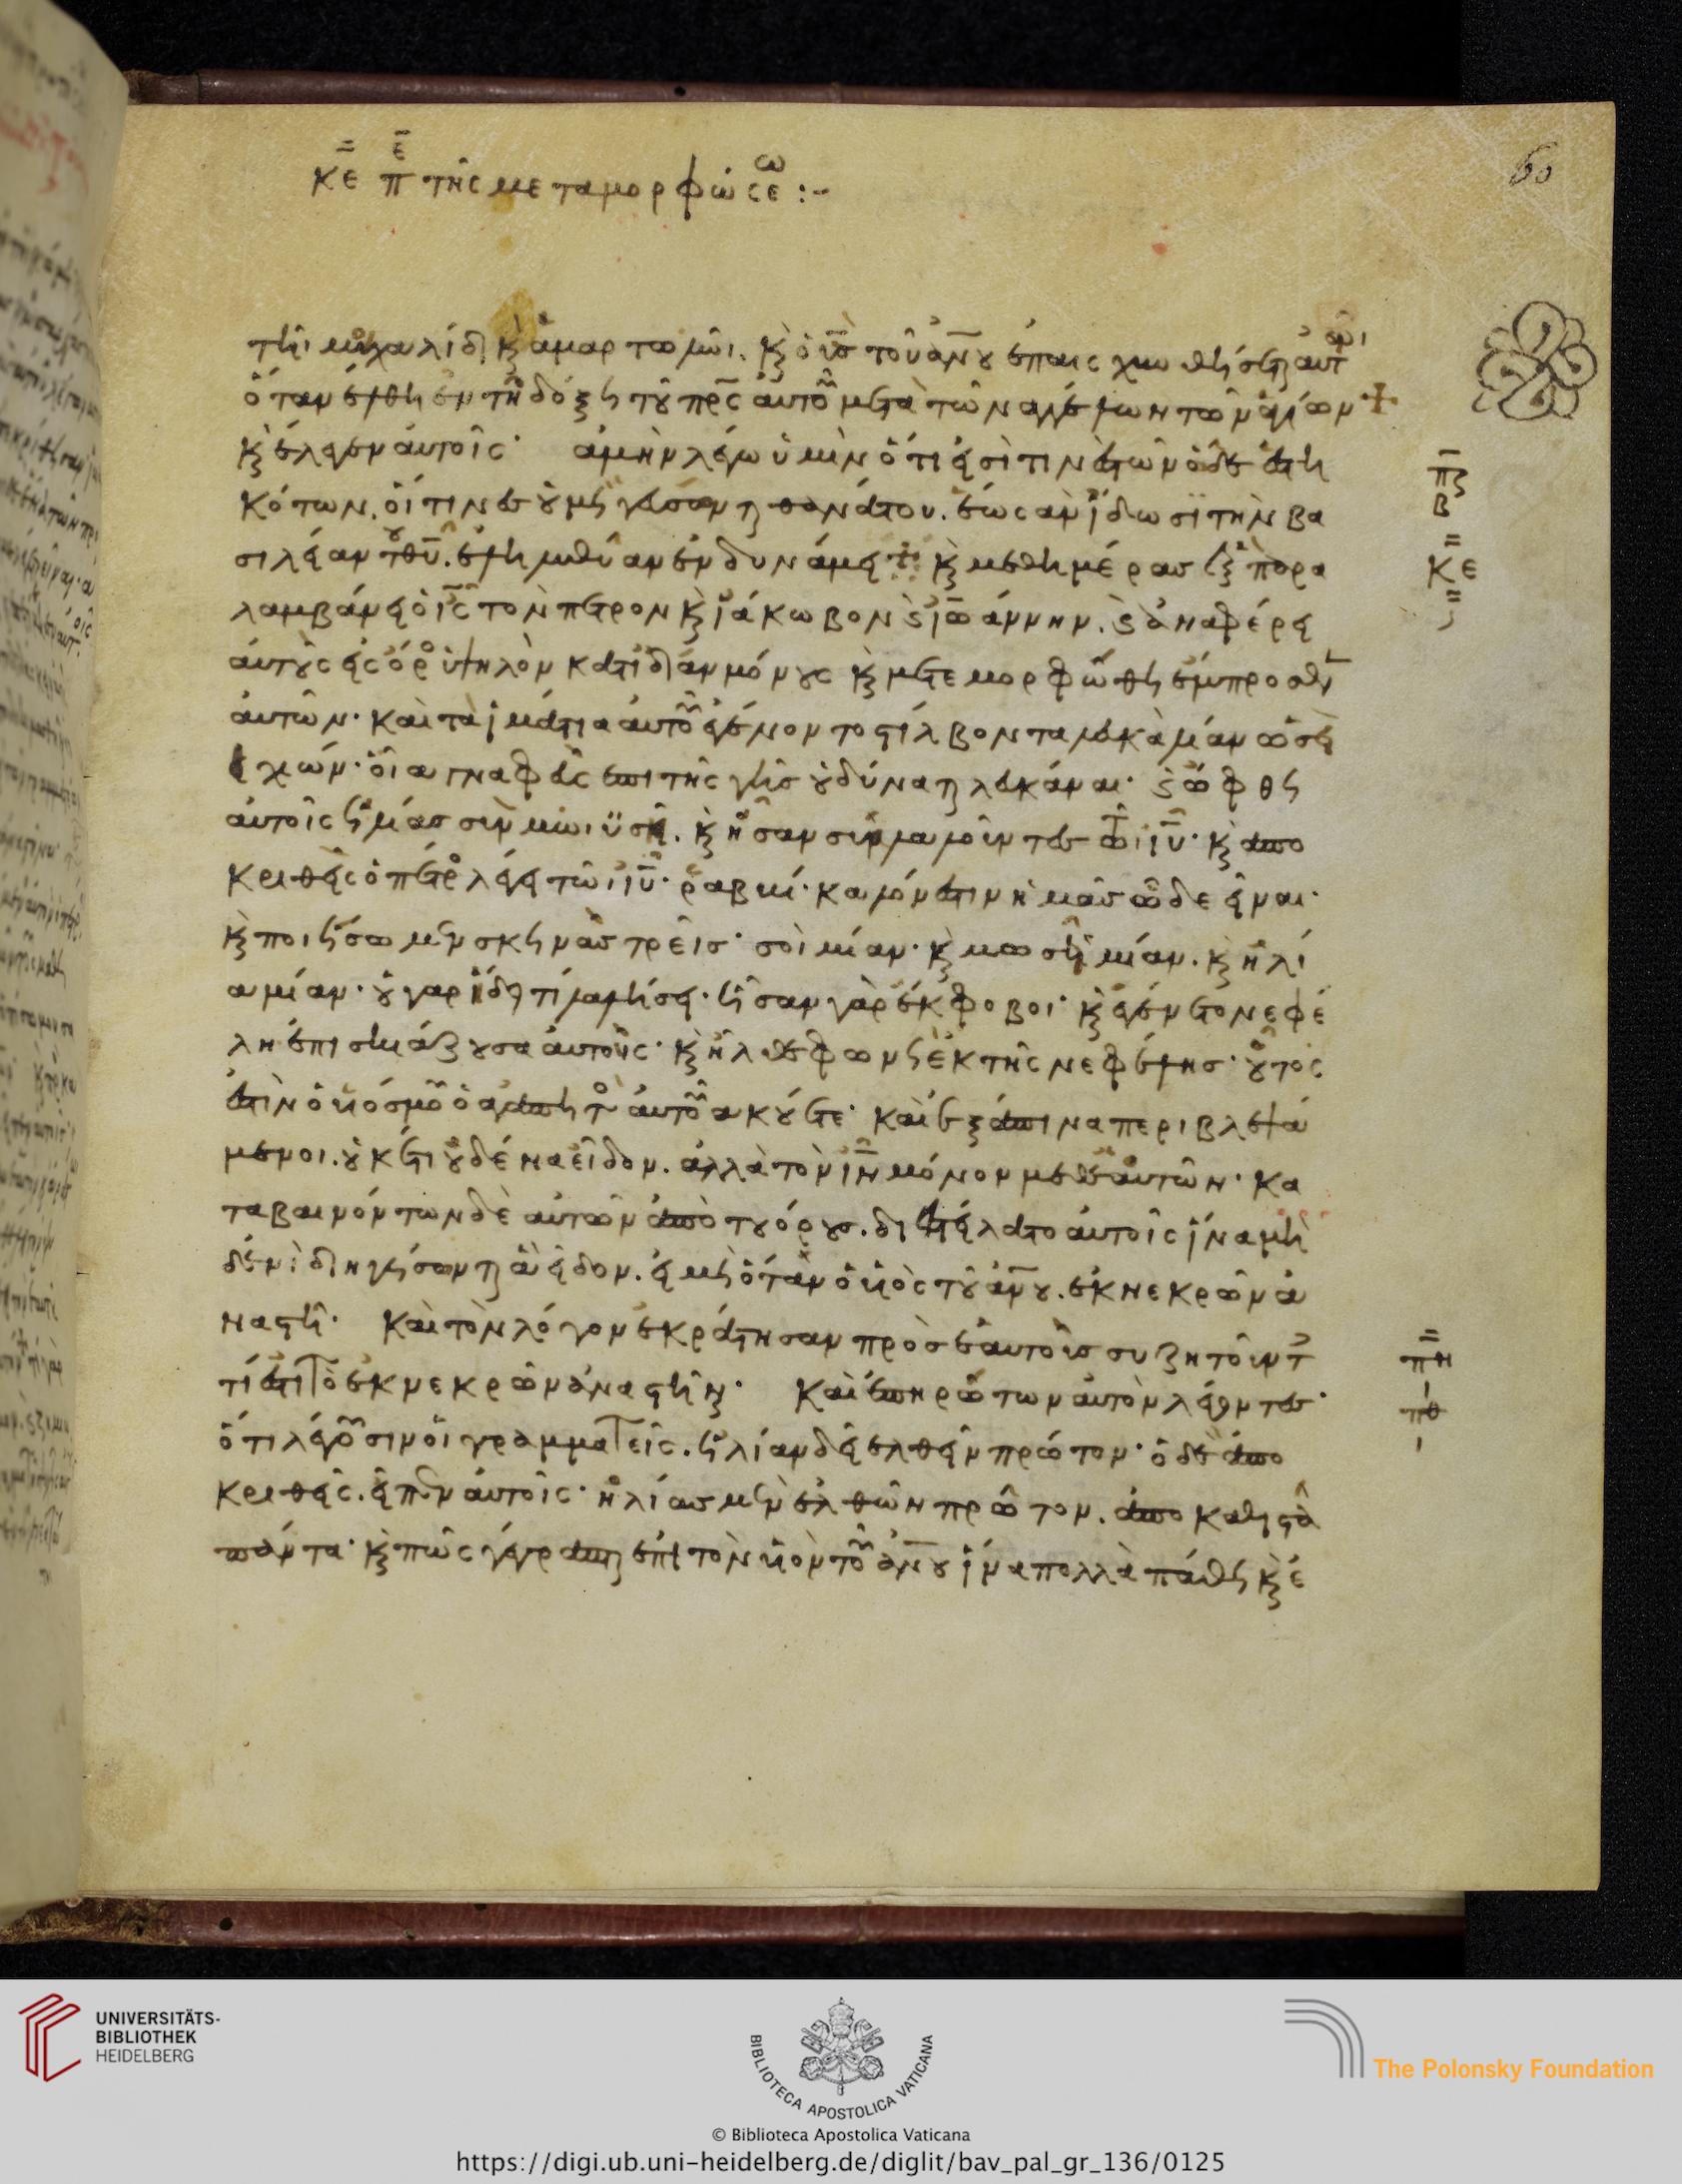 κε πε της μεταμορφώσεω :-
60
τῆι μιχαλίδι κ ἁμαρτωλῶι. κ ὁ ϋσ τοῦ ἀνου ἐπαισχυνθήσεται αὐτῶι
ὅταν ἔλθη ἐν τῆ δόξη του πρσ αὐτοῦ μετὰ τῶν ἀγγέλων τῶν ἁγίων
κ ἔλεγεν αὐτοῖς· ἀμὴν λέγω ὑμῖν ὅτι εἰσὶ τινὲς τῶν ὧδε ἑστη
κότων. οἵτινες οὐ μὴ γεύσονται θανάτου. ἕως ἂν ἴδωσι τὴν βα
σιλείαν του θυ. ἐληλυθύαν ἐν δυνάμει κ μεθημέρας ἓξ παρα
λαμβάνει ὁ ις τὸν πέτρον κ ἰάκωβον κ ἰωάννην. κ ἀναφέρει
αὐτοὺς εἰς ὄρο ὑψηλὸν κατιδίαν μόνους κ μετεμορφώθη ἔμπροσθεν
αὐτῶν· καὶ τὰ ἱμάτια αὐτοῦ ἐγένοντο στίλβοντα λευκὰ λίαν ὡσεὶ
χιών· οἷα γναφεὺς ἐπι τῆς γῆς οὐ δύναται λευκάναι· κ ὤφθη
αὐτοῖς ἡλίας σὺν μωϋσῆ. κ ἦσαν συλλαλοῦντες τῶι ιυ· κ ἀπο
κριθεὶς ὁ πέτρο λέγει τῶι ιυ· ραββί· καλόν ἐστιν ἡμᾶς ὧδε εἶναι·
κ ποιήσωμεν σκηνὰς τρεῖς· σοὶ μίαν· κ μωσῆ μίαν. κ ἠλί
α μίαν· οὐ γαρ ἤδει τί λαλήσει· ἦσαν γὰρ ἔκφοβοι· κ ἐγένετο νεφέ
λη ἐπισκιάζουσα αὐτοῖς· κ ἦλθε φωνὴ ἐκ τῆς νεφέλης· οὗτος
ἐστὶν ὁ υἱός μου ὁ ἀγαπητο αὐτοῦ ἀκούετε· καὶ ἐξάπινα περιβλεψά
μενοι. οὐκέτι οὐδένα εἶδον. ἀλλὰ τὸν ιν μόνον μεθεαυτῶν· κα
ταβαινόντων δὲ αὐτῶν ἀπὸ του ὄρους. διεστείλατο αὐτοῖς ἵνα μη
δενὶ διηγήσωνται ἃ εἶδον. εἰ μὴ ὅταν ὁ υἱὸς του ἀνου. ἐκ νεκρῶν ἀ
ναστῆ· καὶ τὸν λόγον ἐκράτησαν πρὸς ἑαυτοὺς συζητοῦντ
τί ἐστι τὸ ἐκ νεκρῶν ἀναστῆναι· καὶ ἐπηρώτων αὐτὸν λέγοντες·
ὅτι λέγουσιν οἱ γραμματεῖς. ἠλίαν δεῖ ἐλθεῖν πρῶτον· ὁ δὲ ἀπο
κριθεὶς. εἶπεν αὐτοῖς· ἠλίας μὲν ἐλθὼν πρῶτον. ἀποκαθιστᾶ
πάντα· κ πῶς γέγραπται ἐπὶ τὸν υἱὸν τοῦ ἀνου ἵνα πολλὰ πάθη κ ἐ
πζ
β
κε
πη
πθ
UNIVERSITÄTS-
BIBLIOTHEK
HEIDELBERG
BIBLIOTECA APOSTOLICA VATICANA
The Polonsky Foundation
© Biblioteca Apostolica Vaticana
https://digi.ub.uni-heidelberg.de/diglit/bav_pal_gr_136/0125